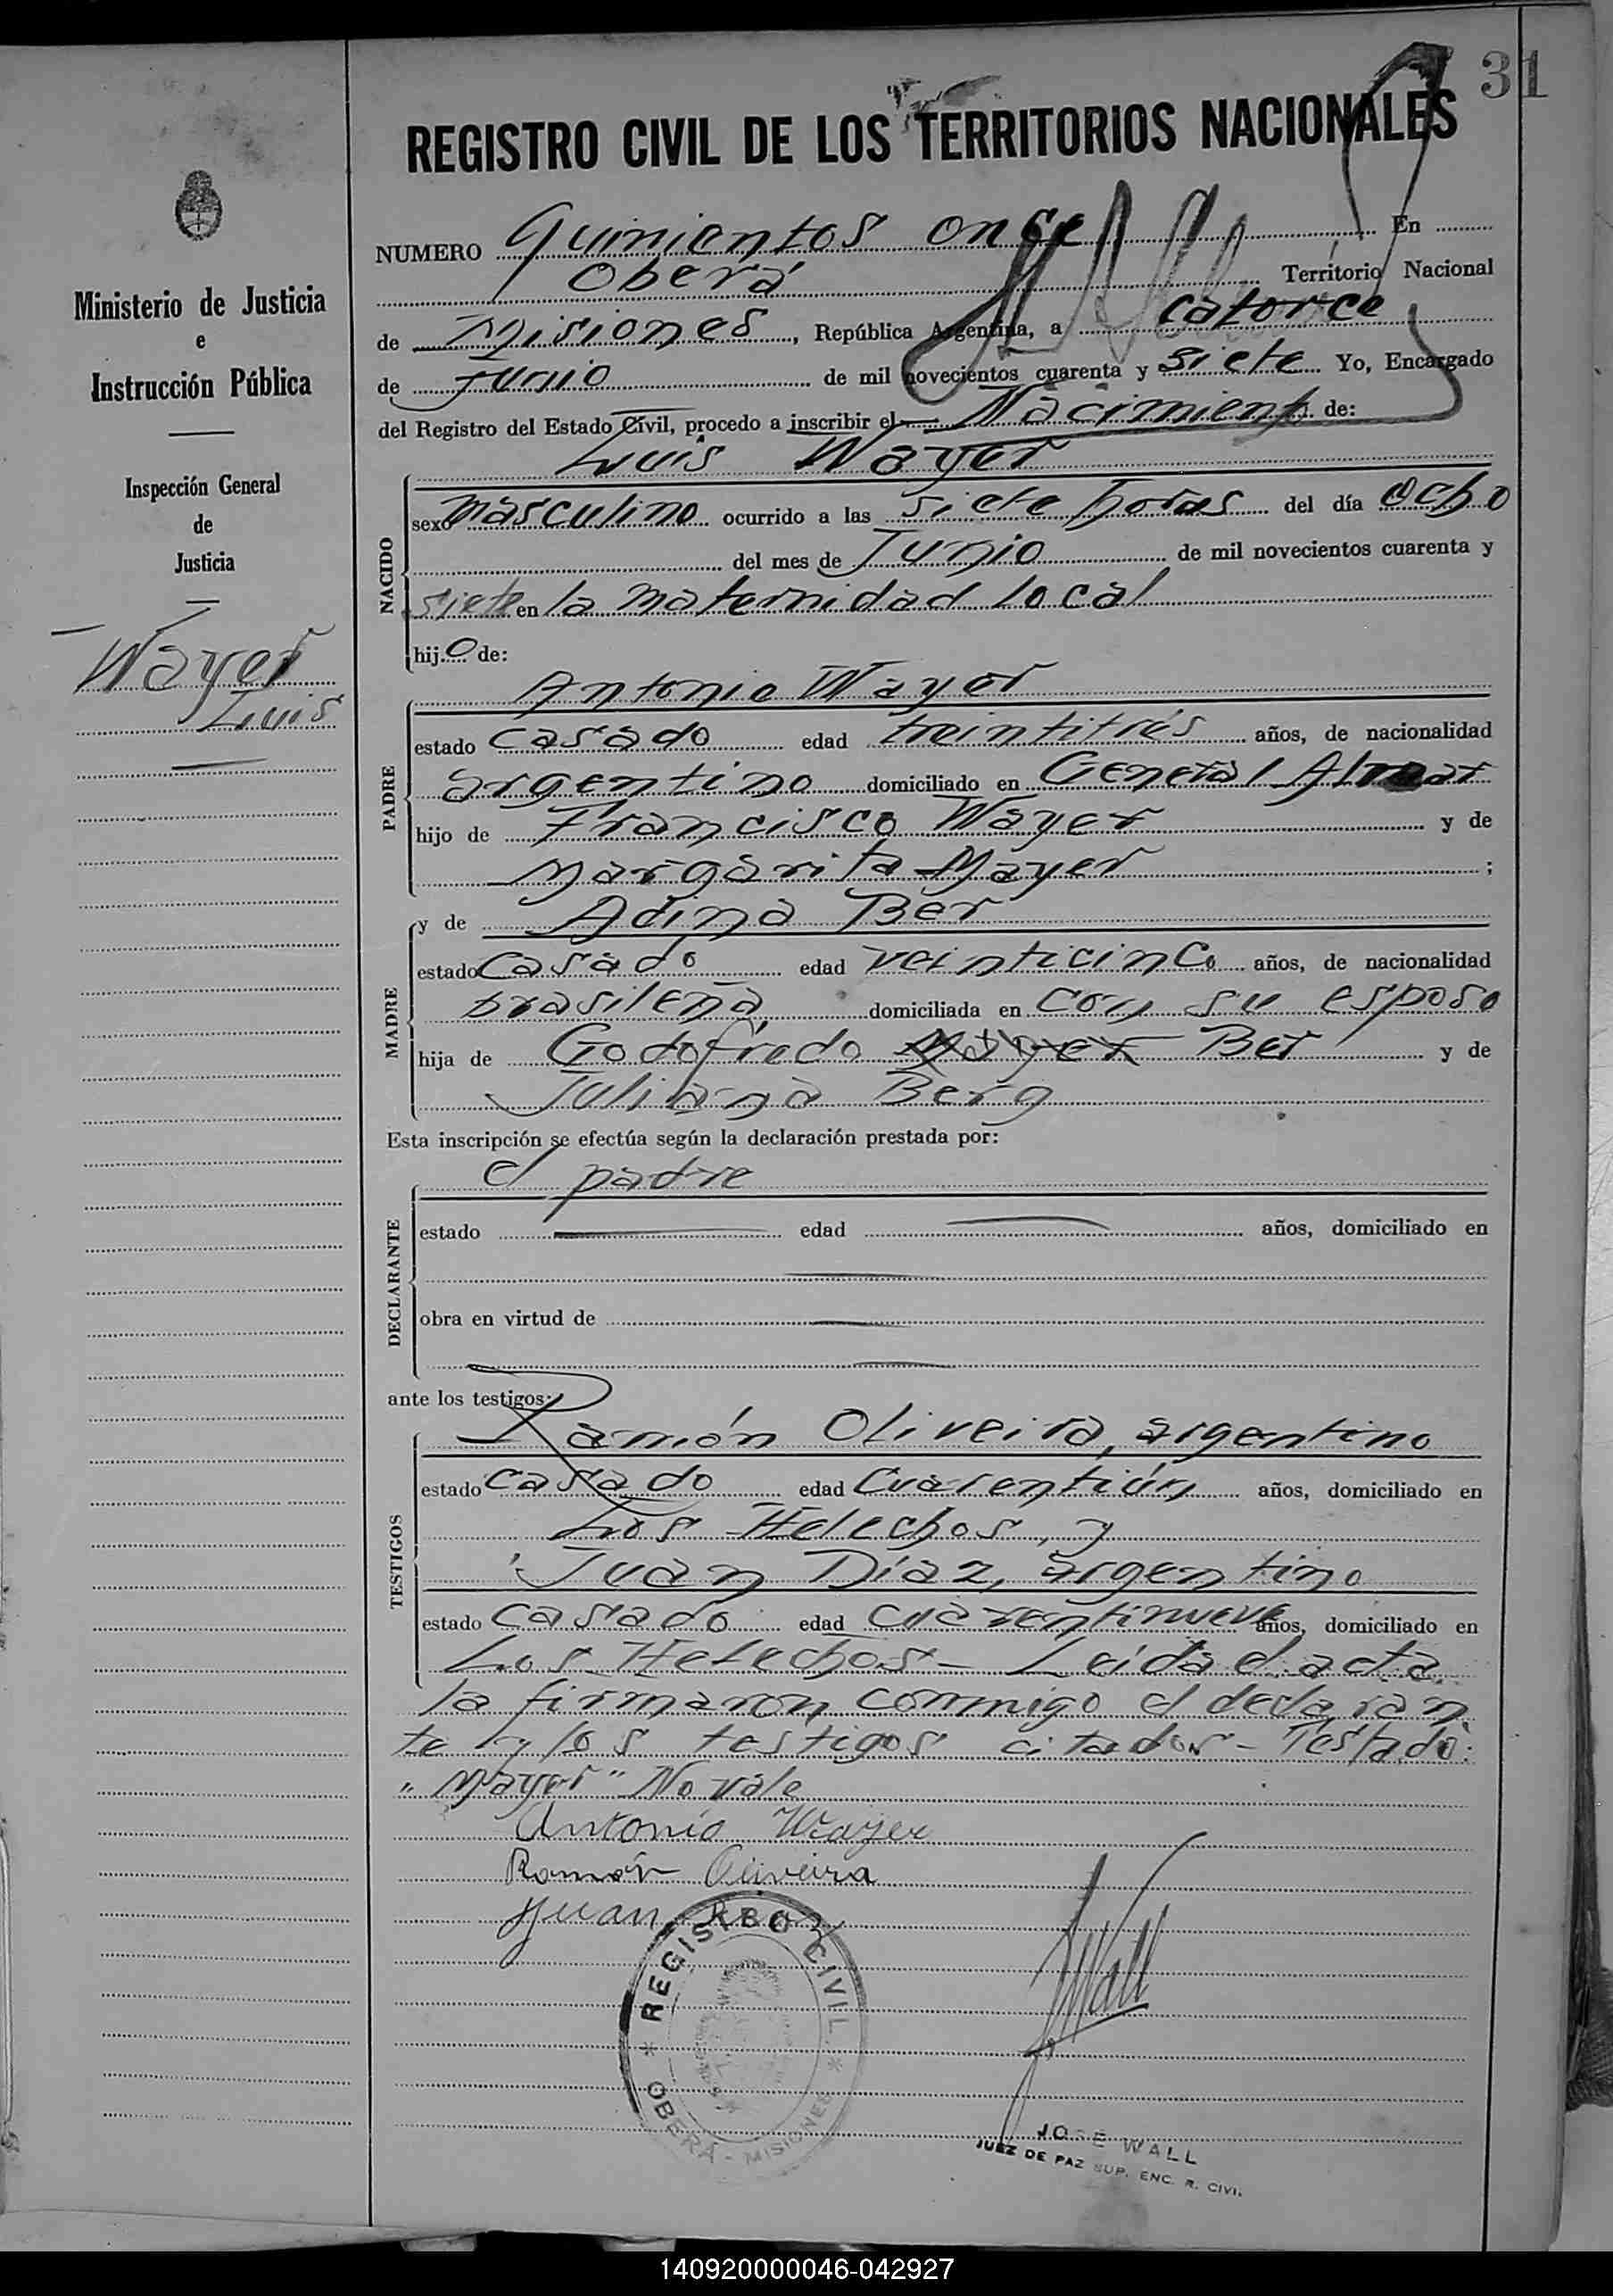 31
REGISTRO CIVIL DE LOS TERRITORIOS NACIONALES
Ministerio de Justicia
e
Instrucción Pública
Inspección General
de
Justicia
Wayer
Luis
NUMERO Quinientos once En
Oberá Territorio Nacional
de Misiones, República Argentina, a catorce
de Junio de mil novecientos cuarenta y siete Yo, Encargado
del Registro del Estado Civil, procedo a inscribir el Nacimiento de:
Luis Wayer
NACIDO
sexo masculino ocurrido a las siete horas del día ocho
del mes de Junio de mil novecientos cuarenta y
siete en la maternidad local
hijo de:
Antonio Wayer
PADRE
estado casado edad treintitrés años, de nacionalidad
argentino domiciliado en General
hijo de Francisco Wayer y de
Margarita Mayer ;
y de Adina Ber
MADRE
estado casado edad veinticinco años, de nacionalidad
brasileña domiciliada en con su esposo
hija de Godofredo Mayer Ber y de
Juliana Berg
Esta inscripción se efectúa según la declaración prestada por:
el padre
DECLARANTE
estado edad años, domiciliado en
obra en virtud de
ante los testigos:
Ramón Oliveira, argentino
TESTIGOS
estado casado edad cuarentiún años, domiciliado en
Los Helechos, y
Juan Díaz, argentino
estado casado edad cuarentinueve años, domiciliado en
Los Helechos - Leída el acta
la firmaron conmigo el declaran
te y los testigos citados - Testado:
"Mayer" No vale
Antonio Wayer
Ramón Oliveira
Juan
Wall
REGISTRO CIVIL
* OBERÁ - MISIONES *
JOSE WALL
JUEZ DE PAZ SUP. ENC. R. CIVI.
140920000046-042927